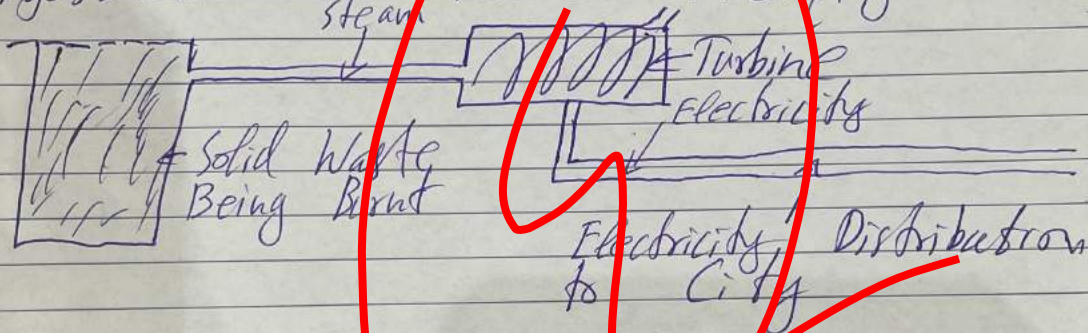 steam
Turbine
Electricity
Solid Waste
Being Burnt
Electricity Distribution
to City